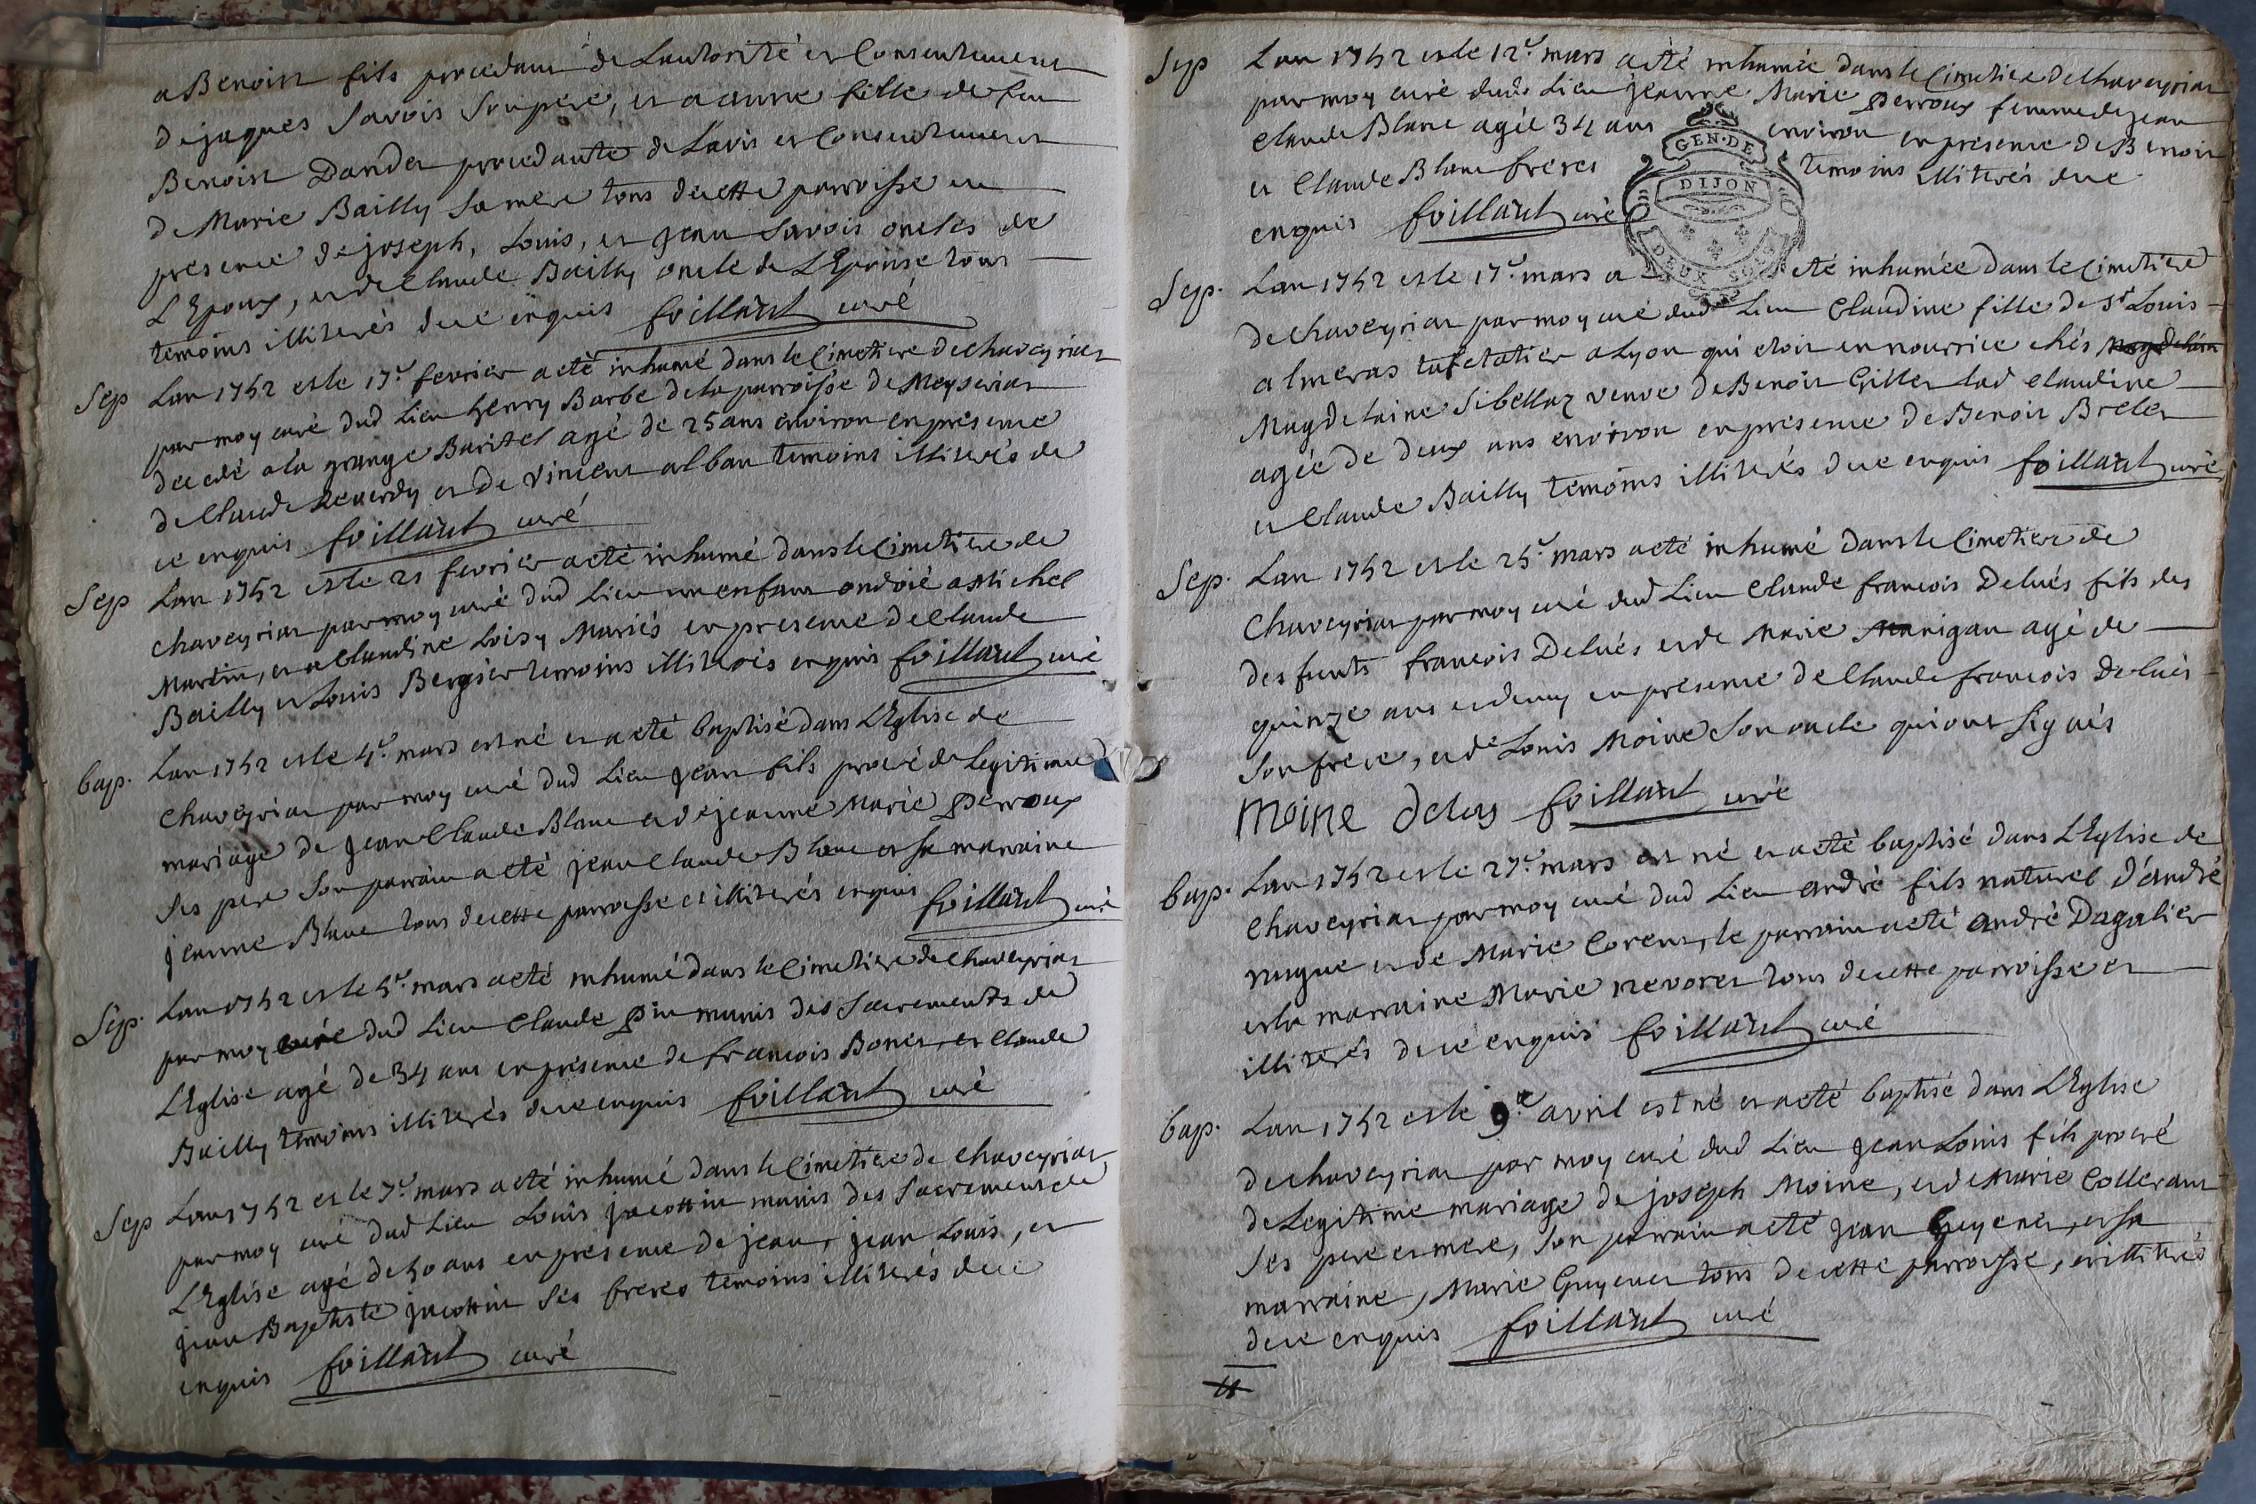 a Benoist fils procedant de Lautorité et Consentement
de jaques Savois Son pere, et a anne fille de feu
Benoist Dandet procedante de Lavis et Consentement
de Marie Bailly Sa mere tous de cette parroisse en
presence de joseph, Louis, et jean Savois oncles de
L'Epoux, et de Claude Bailly oncle de L'Epouse tous
temoins illiterés de ce enquis foillard curé
Sep Lan 1752 et le 17e fevrier a eté inhumé dans le Cimetiere de chaveyriat
par moy curé dud Lieu henry Barbe de la parroisse de Meyseriat
decedé a la grange Baritel agé de 25 ans environ en presence
de Claude Reverdy et de Vincent alban temoins illiterés de
ce enquis foillard curé
Sep Lan 1752 et le 21 fevrier a eté inhumé dans le Cimetiere de
chaveyriat par moy curé dud Lieu un enfant ondoié a Michel
Martin, et a Claudine Loisy Mariés en presence de Claude
Bailly et Louis Bergier temoins illiterés enquis foillard curé
bap. Lan 1752 et le 4e mars est né et a eté baptisé dans L'Eglise de
chaveyriat par moy curé dud Lieu jean fils procréé de Legitime
mariage de jean Claude Blanc et de jeanne Marie perroux
Ses pere Son parrain a eté jean Claude Blanc et sa marraine
jeanne Blanc tous de cette parroisse et illiterés enquis foillard curé
Sep. Lan 1752 et le 5e mars a eté inhumé dans le Cimetiere de Chaveyriat
par moy curé dud Lieu Claude pin munis des Sacrements de
L'Eglise agé de 34 ans en presence de francois Bonet, et Claude
Bailly temoins illiterés de ce enquis foillard curé
Sep Lan 1752 et le 7e mars a eté inhumé dans le Cimetiere de chaveyriat
par moy curé dud Lieu Louis jacottin munis des Sacrements de
L'Eglise agé de 50 ans en presence de jean, jean Louis, et
jean Baptiste jacottin Ses freres temoins illiterés de ce
enquis foillard curé
Sep Lan 1752 et le 12e mars a eté inhumée dans le Cimetiere de chaveyriat
par moy curé dud Lieu jeanne Marie perroux femme de jean
Claude Blanc agée 34 ans environ en presence de Benoit
et Claude Blanc freres temoins illiterés de ce
enquis foillard curé
GEN. DE
DIJON
DEUX SOLS
Sep. Lan 1752 et le 17e mars a eté inhumée dans le Cimetiere
de chaveyriat par moy curé dud Lieu Claudine fille de Sr Louis
almeras tafetatier a Lyon qui etoit en nourrice chés Magdelain
Magdelaine Sibellaz veuve de Benoit Gillet lad Claudine
agée de deux ans environ en presence de Benoit Brelet
et Claude Bailly temoins illiterés de ce enquis foillard curé
Sep. Lan 1752 et le 25e mars a eté inhumé dans le Cimetiere de
Chaveyriat par moy curé dud Lieu Claude francois Delués fils des
desfunts francois Delués et de Marie Marigan agé de
quinze ans et demy en presence de Claude francois Delués
Son frere, et de Louis Moine Son oncle qui ont Signés
moine delus foillard curé
bap. Lan 1752 et le 27e mars est né et a eté baptisé dans L'Eglise de
Chaveyriat par moy curé dud Lieu andré fils naturel d'andré
nugue et de Marie Corent, le parrain a eté andré Dagalier
et la marraine Marie nevoret tous de cette parroisse et
illiterés de ce enquis foillard curé
bap. Lan 1752 et le 9e avril est né et a eté baptisé dans L'Eglise
de chaveyriat par moy curé dud Lieu jean Louis fils procréé
de Legitime mariage de joseph Moine, et de Marie Collerant
Ses pere et mere, Son parrain a eté jean Guyenet, et sa
marraine, Marie Guyenet tous de cette parroisse, et illiterés
de ce enquis foillard curé